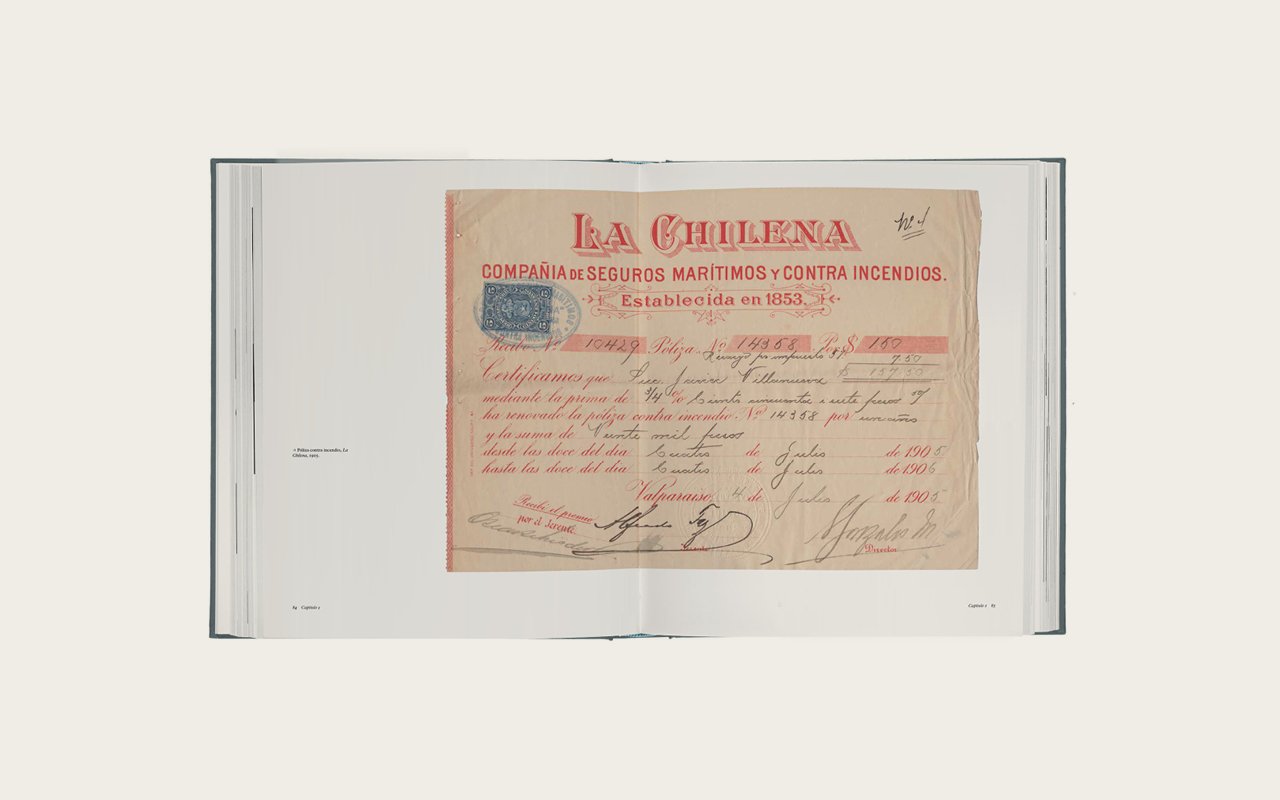 LA CHILENA
Nº 1
COMPAÑIA DE SEGUROS MARÍTIMOS Y CONTRA INCENDIOS.
Establecida en 1853.
Recibo Nº 10429 Póliza Nº 14358 Por $ 150
Recargo por impuesto 5% 7.50
Certificamos que Suc. Javier Villanueva $ 157.50
mediante la prima de 3/4 % Ciento cincuenta i siete pesos
ha renovado la póliza contra incendio Nº 14358 por un año
y la suma de Veinte mil pesos
desde las doce del dia Cuatro de Julio de 1905
hasta las doce del dia Cuatro de Julio de 1906
Valparaiso, 4 de Julio de 1905
Recibí el premio
por el Gerente
Alfredo
Gerente
Director
Póliza contra incendio, La
Chilena, 1905.
84 Capítulo 2
Capítulo 2 85